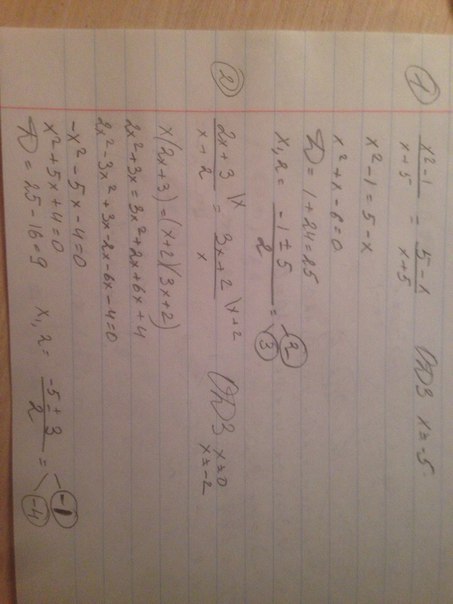 1) (x²-1)/(x+5) = (5-x)/(x+5) ОДЗ x = -5
x²-1=5-x
x²+x-6=0
D = 1+24=25
x1,2 = (-1±5)/2 = 2
3
2) (2x+3)/(x+2) \x = (3x+2)/x \x+2 ОДЗ x=0
x=-2
x(2x+3)=(x+2)(3x+2)
2x²+3x=3x²+2x+6x+4
2x²-3x²+3x-2x-6x-4=0
-x²-5x-4=0
x²+5x+4=0
D = 25-16=9 x1,2 = (-5±3)/2 = -1
-4